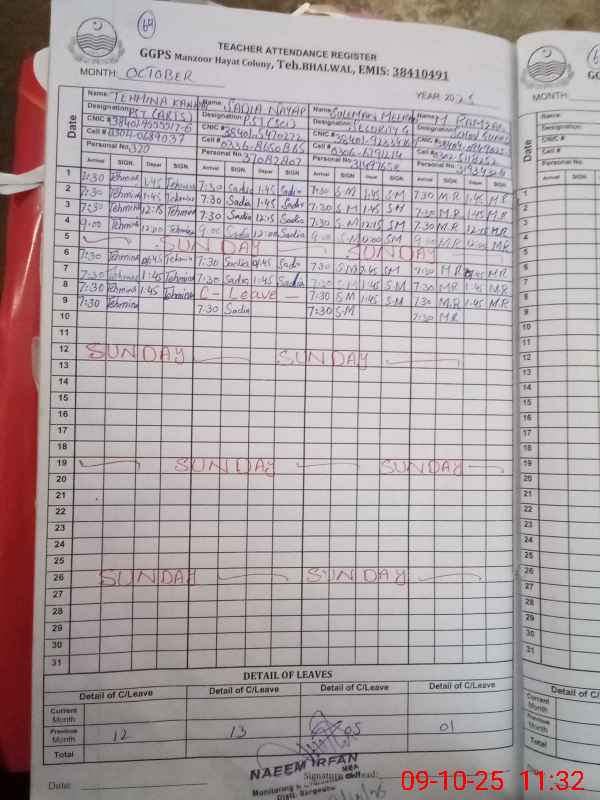 64
TEACHER ATTENDANCE REGISTER
GGPS Manzoor Hayat Colony, Teh.BHALWAL, EMIS: 38410491
MONTH: OCTOBER YEAR: 2025
Date
Name: TEHMINA Name: SADIA Name: Name: M.
Designation: PST (ARTS) Designation: PST (Sci) Designation: SECURITY G Designation:
CNIC # CNIC # CNIC # CNIC #
Cell # 0304-0689037 Cell # 0336-8650865 Cell # Cell #
Personal No. 320 Personal No. 37082807 Personal No. Personal No.
Arrival SIGN. Depar SIGN. Arrival SIGN. Depar SIGN. Arrival SIGN. Depar SIGN. Arrival SIGN. Depar SIGN.
1 7:30 Tehmina 1:45 Tehmina 7:30 Sadia 1:45 Sadia 7:30 S.M 1:45 S.M 7:30 M.R 1:45 M.R
2 7:30 Tehmina 1:45 Tehmina 7:30 Sadia 1:45 Sadia 7:30 S.M 1:45 S.M 7:30 M.R 1:45 M.R
3 7:30 Tehmina 12:15 Tehmina 7:30 Sadia 12:15 Sadia 7:30 S.M 12:15 S.M 7:30 M.R 12:15 M.R
4 9:00 Tehmina 12:00 Tehmina 9:00 Sadia 12:00 Sadia 9:00 S.M 12:00 S.M 9:00 M.R M.R
5 SUNDAY SUNDAY
6 7:30 Tehmina Tehmina 7:30 Sadia 1:45 Sadia 7:30 S.M 1:45 S.M 7:30 M.R 1:45 M.R
7 7:30 Tehmina 1:45 Tehmina 7:30 Sadia 1:45 Sadia 7:30 S.M 1:45 S.M 7:30 M.R 1:45 M.R
8 7:30 Tehmina 1:45 Tehmina C- Leave - 7:30 S.M 1:45 S.M 7:30 M.R 1:45 M.R
9 7:30 Tehmina 7:30 Sadia 7:30 S.M 7:30 M.R
10
11
12 SUNDAY SUNDAY
13
14
15
16
17
18
19 SUNDAY SUNDAY
20
21
22
23
24
25
26 SUNDAY SUNDAY
27
28
29
30
31
DETAIL OF LEAVES
Detail of C/Leave Detail of C/Leave Detail of C/Leave Detail of C/Leave
Current Month
Previous Month 12 13 05 01
Total
NAEEM IRFAN
MBA
Monitoring &
Distt. Sargodha
Date: Signature of Head:
MONTH:
Name:
Designation:
CNIC #
Cell #
Personal No.
Date
Arrival SIGN. Depar SIGN.
1
2
3
4
5
6
7
8
9
10
11
12
13
14
15
16
17
18
19
20
21
22
23
24
25
26
27
28
29
30
31
Detail of C/
Current Month
Previous Month
Total
Date:
09-10-25 11:32